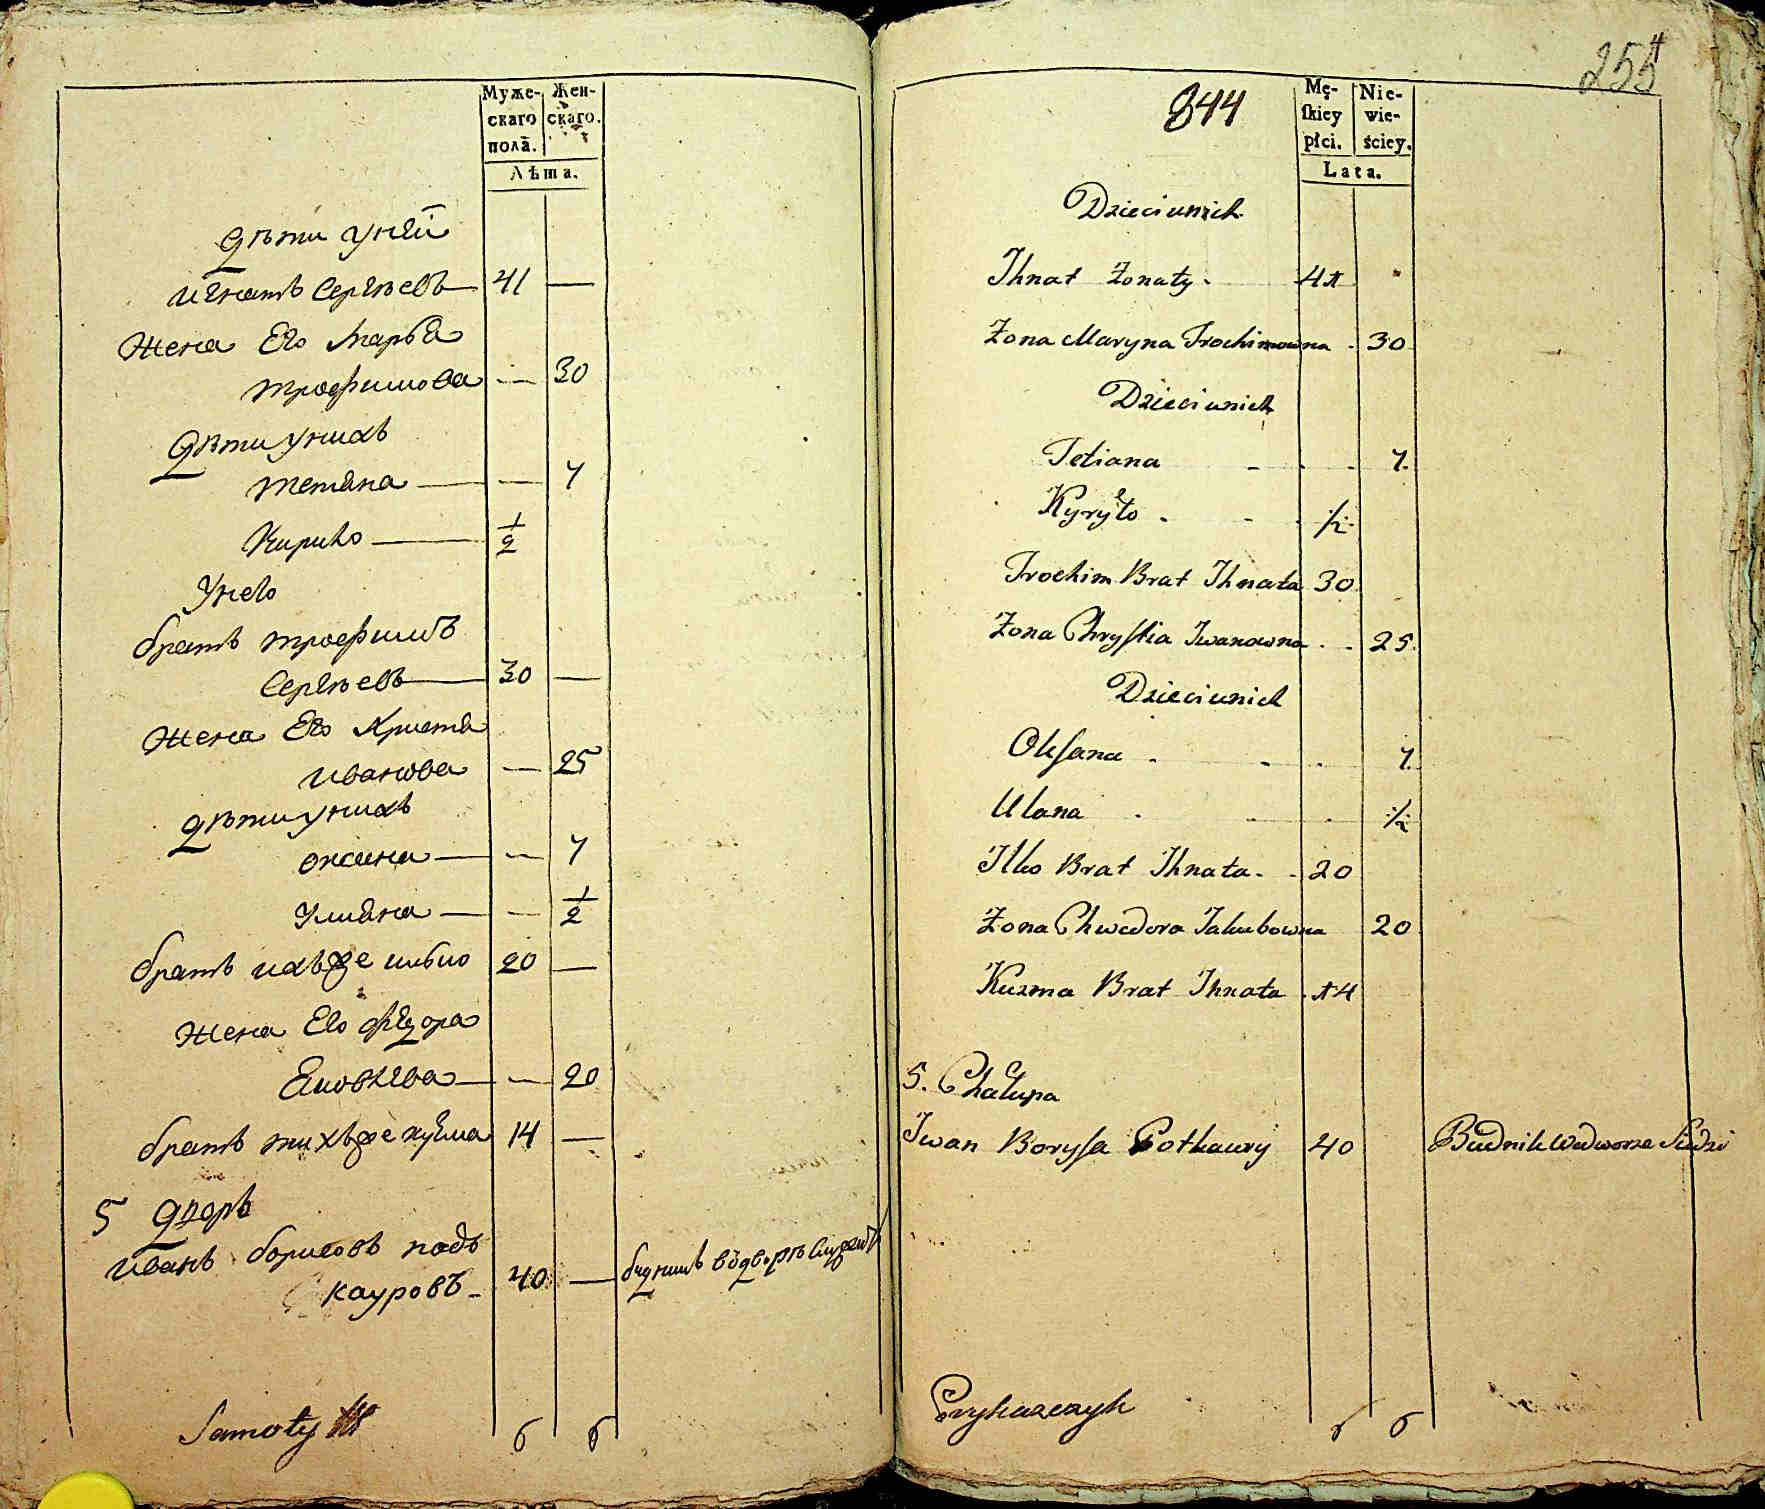 Муже-
скаго
пола.
Жен-
скаго.
Лѣта.
Дѣти у ней
Игнатъ Сергѣевъ 41 —
Жена Его Марья
Трофимова — 30
Дѣти у нихъ
Тетяна — 7
Кирило 1/2
У него
братъ Трофимъ
Сергѣевъ 30 —
Жена Его Христя
Иванова — 25
Дѣти у нихъ
Оксина — 7
Улияна — 1/2
братъ ихъ же Илько 20 —
Жена Его Федора
Яковлева — 20
братъ ихъ же Кузма 14 —
5 дворъ
Иванъ Борисовъ Под
кауровъ 40 —
Samoty
6 6
255
4
844
Mę-
skiey
płci.
Nie-
wie-
ściey.
Lata.
Dzieci u nich
Ihnat Żonaty 41
Żona Maryna Trochimowna 30
Dzieci u nich
Tetiana 7.
Kyryło 1/2
Trochim Brat Ihnata 30
Żona Chrystia Iwanowna 25.
Dzieci u nich
Oksana 7.
Ulana 1/2
Ilko Brat Ihnata 20
Żona Chwedora Jakubowna 20
Kuzma Brat Ihnata 14
5. Chałupa
Iwan Borysa Potkaury 40 Budnik we dworze
Prykazczyk
6 6